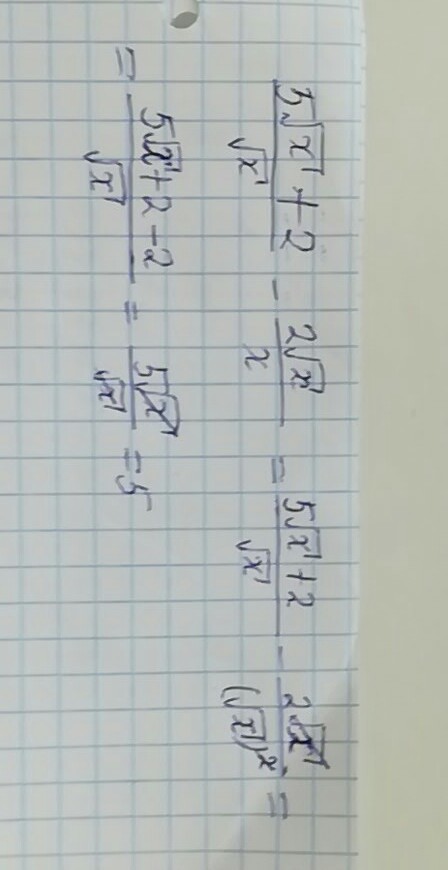 (5√x + 2)/√x - 2√x/x = (5√x + 2)/√x - 2√x/(√x)² =
= (5√x + 2 - 2)/√x = 5√x/√x = 5